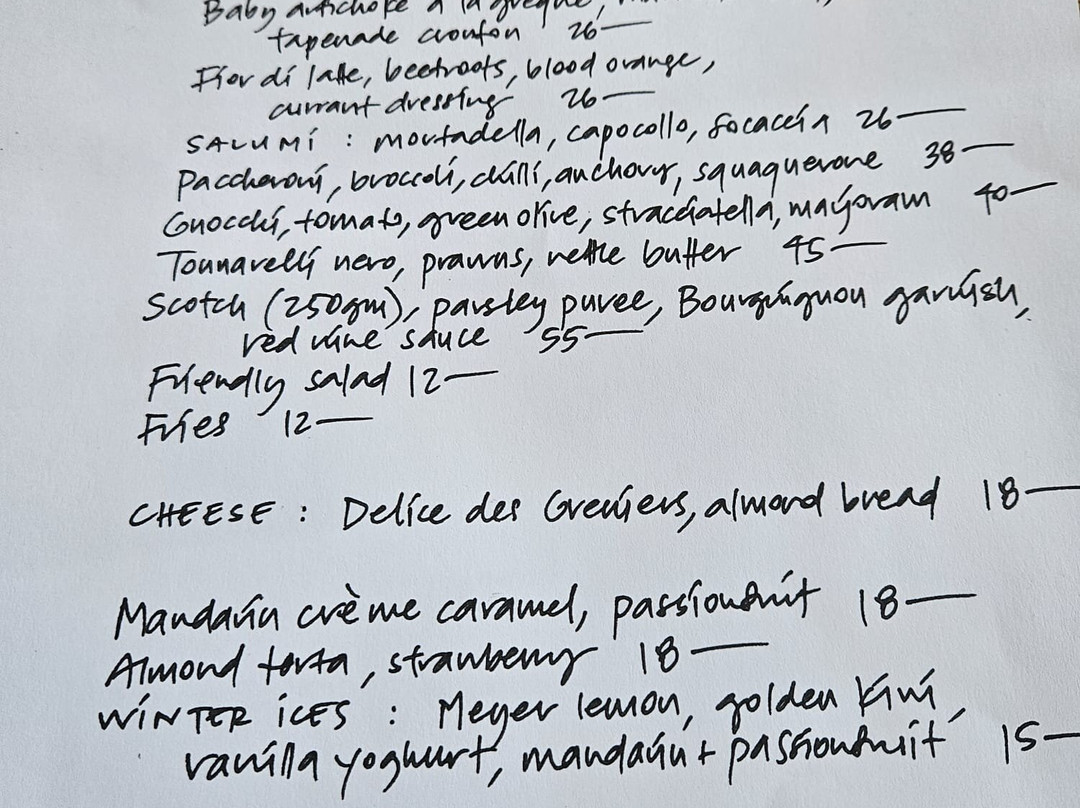 Baby artichoke à la grecque,
tapenade crouton 26—
Fior di latte, beetroots, blood orange,
currant dressing 26—
SALUMI : mortadella, capocollo, focaccia 26—
Paccheroni, broccoli, chilli, anchovy, squaquerone 38—
Gnocchi, tomato, green olive, stracciatella, marjoram 40—
Tonnarelli nero, prawns, nettle butter 45—
Scotch (250gm), parsley puree, Bourguignon garnish,
red wine sauce 55—
Friendly salad 12—
Fries 12—
CHEESE : Delice des Cremiers, almond bread 18—
Mandarin crème caramel, passionfruit 18—
Almond torta, strawberry 18—
WINTER ICES : Meyer lemon, golden kiwi,
vanilla yoghurt, mandarin + passionfruit 15—